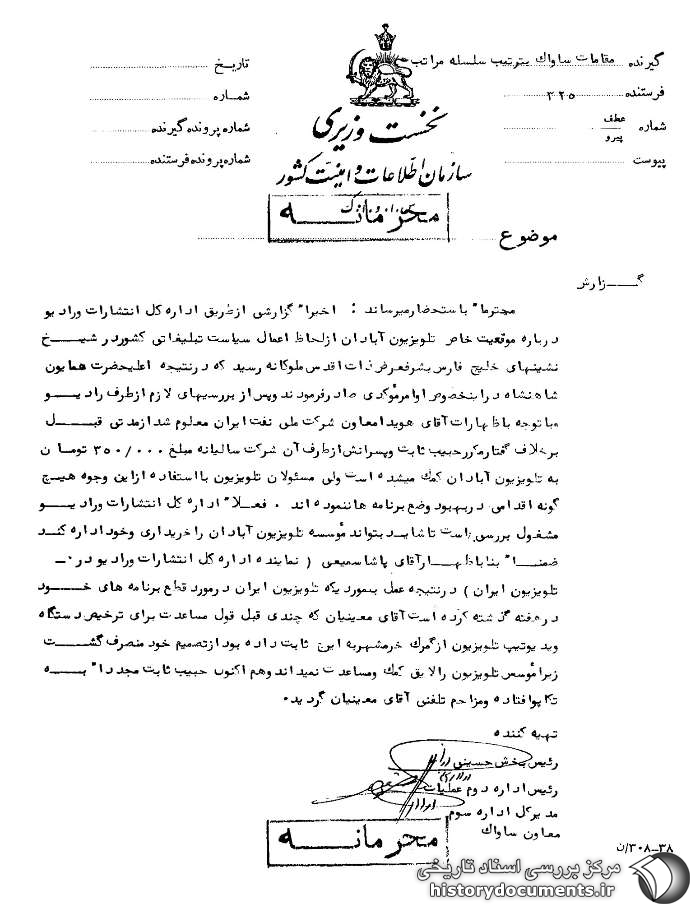 گیرنده مقامات ساواك بترتیب سلسله مراتب
تاریخ
فرستنده ۳۲۵
شماره
شماره عطف
پیرو
شماره پرونده گیرنده
پیوست
شماره پرونده فرستنده
نخست وزیری
سازمان اطلاعات و امنیت کشور
محرمانه
موضوع
گزارش
محترما" باستحضار میرساند : اخیرا" گزارشی ازطریق اداره کل انتشارات ورادیو
درباره موقعیت خاص تلویزیون آبادان ازلحاظ اعمال سیاست تبلیغاتی کشور در شیخ
نشینهای خلیج فارس بشرفعرض ذات اقدس ملوکانه رسید که درنتیجه اعلیحضرت همایون
شاهنشاه دراینخصوص اوامر مؤکدی صادرفرمودند وپس از بررسیهای لازم ازطرف رادیو
وباتوجه باظهارات آقای هویدا معاون شرکت ملی نفت ایران معلوم شد ازمدتی قبل
برخلاف گفتارمکرر حبیب ثابت وپسرانش ازطرف آن شرکت سالیانه مبلغ ۳۵۰/۰۰۰ تومان
به تلویزیون آبادان کمك میشده است ولی مسئولان تلویزیون بااستفاده ازاین وجوه هیچ
گونه اقدامی دربهبود وضع برنامه ها ننموده اند . فعلا" اداره کل انتشارات ورادیو
مشغول بررسی است تا شاید بتواند مؤسسه تلویزیون آبادان را خریداری وخود اداره کند
ضمنا" بنا باظهار آقای پاشاسمیعی ( نماینده اداره کل انتشارات ورادیو در
تلویزیون ایران ) درنتیجه عمل بیموردیکه تلویزیون ایران درمورد قطع برنامه های خود
درهفته گذشته کرده است آقای معینیان که چندی قبل قول مساعدت برای ترخیص دستگاه
ویدیوتیپ تلویزیون ازگمرك خرمشهربه ایرج ثابت داده بود ازتصمیم خود منصرف گشت
زیرا مؤسس تلویزیون رالایق کمك ومساعدت نمیداند وهم اکنون حبیب ثابت مجددا" به
تکاپوافتاده ومزاحم تلفنی آقای معینیان گردید.
تهیه کننده
رئیس بخش حسینی
رئیس اداره دوم عملیات
مدیرکل اداره سوم
معاون ساواك
محرمانه
۳۸-۳۰۸/ن
مرکز بررسی اسناد تاریخی
historydocuments.ir